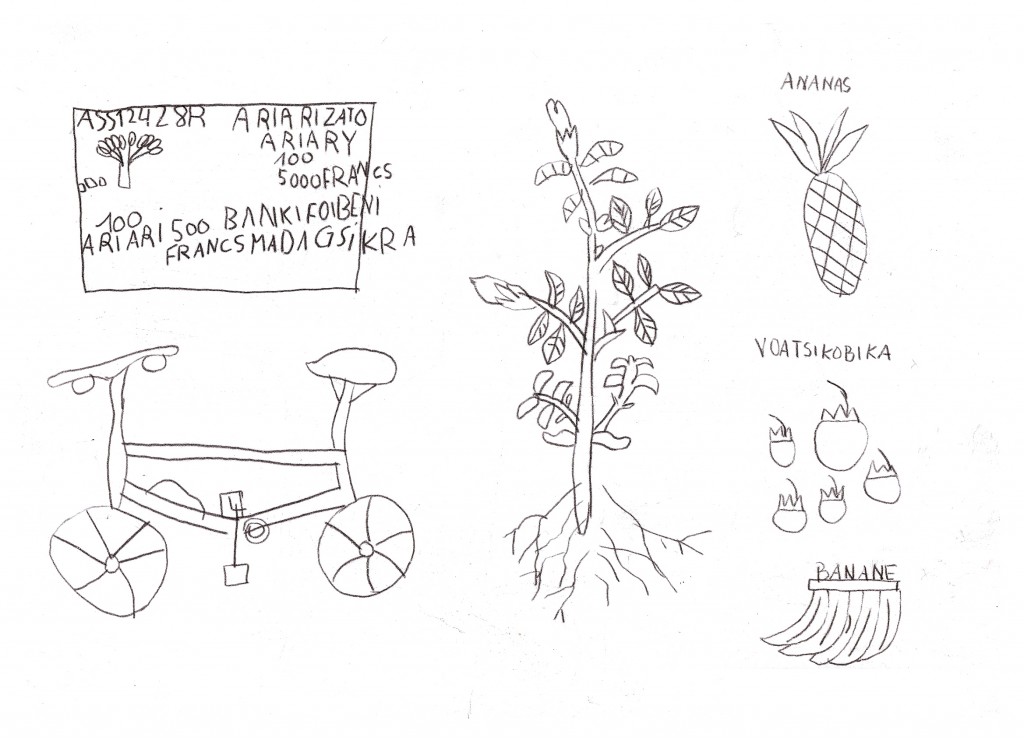 ASS12428R ARIARIZATO
ARIARY
100
5000FRANCS
100 500 BANKIFOIBENI
ARIARI FRANCSMADAGSIKRA
ANANAS
VOATSIKOBIKA
BANANE